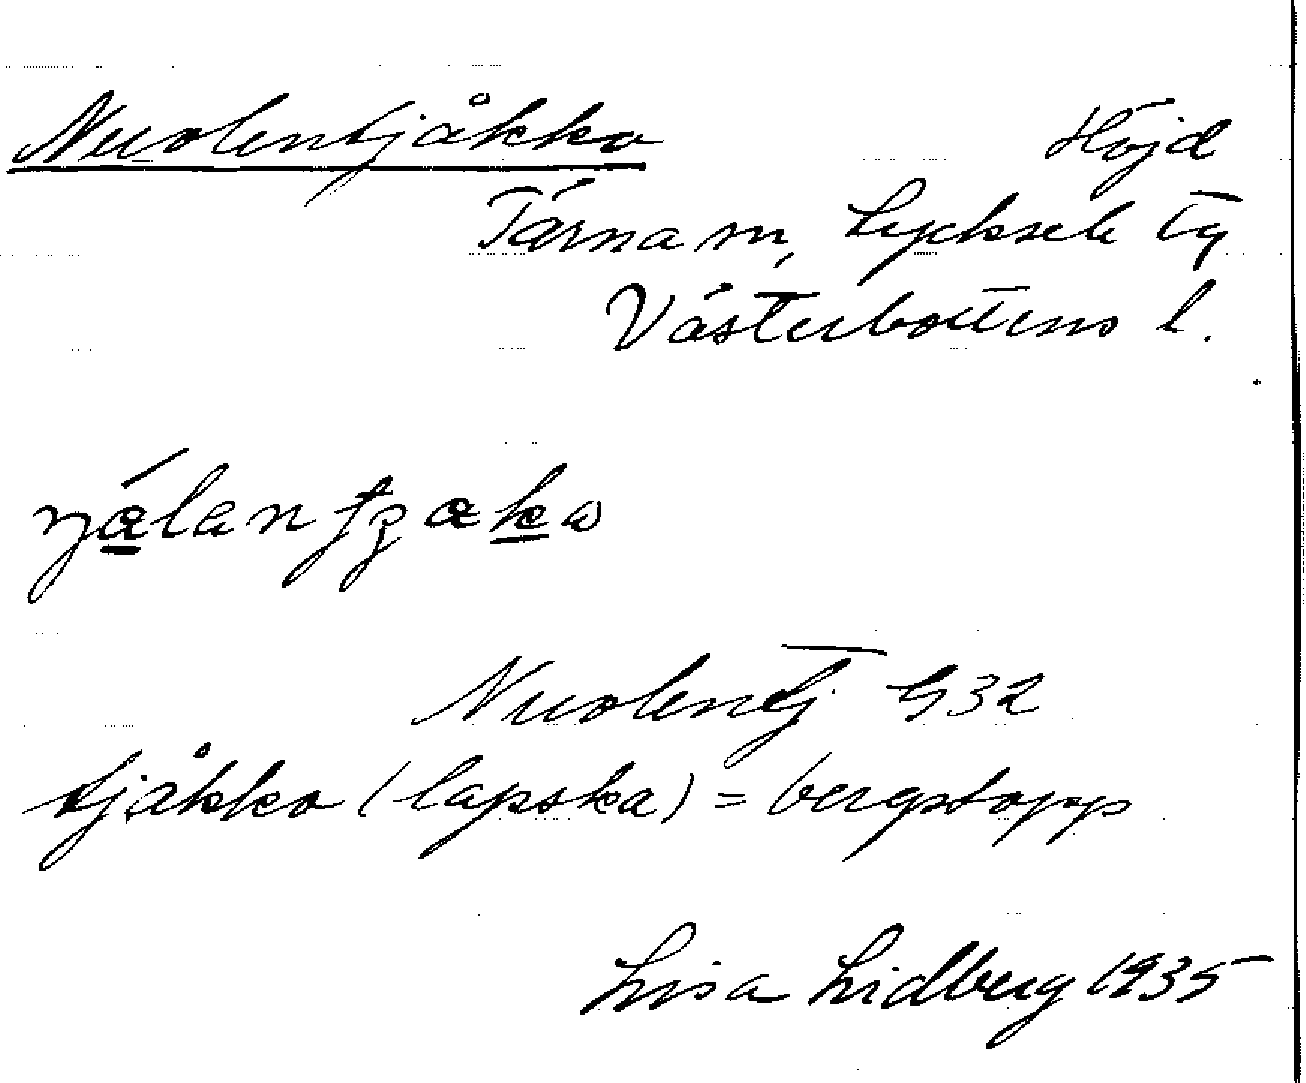 Nuolentjåkko Höjd
Tärna sn, Lycksele tg
Västerbottens l.
Nuolentj 932
tjåkko (lapska) = bergstopp
Lisa Lidberg 1935